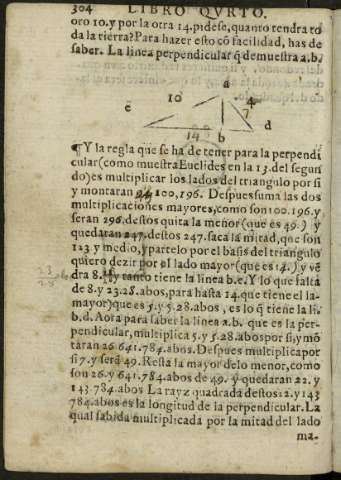 304 LIBRO QVRTO.
oro 10. y por la otra 14. pidese, quanto tendra to
da la tierra? Para hazer esto cō facilidad, has de
saber. La linea perpendicular q̄ demuestra a.b.
a
10
4
e
7
14
b
d
¶Y la regla que se ha de tener para la perpendi
cular (como muestra Euclides en la 13. del segun
do) es multiplicar los lados del triangulo por si
y montaran 49. 100, 196. Despues suma las dos
multiplicaciones mayores, como son 100. 196. y
seran 296. destos quita la menor (que es 49.) y
quedaran 247. destos 247. saca la mitad, que son
123 y medio, y partelo por el basis del triangulo
quiero dezir por el lado mayor (que es 14.) y vē
dra 8. Hy tanto tiene la linea b.e. Y lo que falta
de 8. y 23. 28. abos, para hasta 14. que tiene el la-
mayor) que es 5. y 5. 28. abos, es lo q̄ tiene la li.
b.d. Aora para saber la linea a.b. que es la per-
pendicular, multiplica 5. y 5. 28. abos por si, y mō
taran 26. 641. 784. abos. Despues multiplica por
si 7. y sera 49. Resta la mayor de lo menor, como
son 26. y 641. 784. abos de 49. y quedaran 22. y
143. 784. abos La rayz quadrada destos 22. y 143
784. abos es la longitud de la perpendicular. La
qual sabida multiplicada por la mitad del lado
ma-
23
28